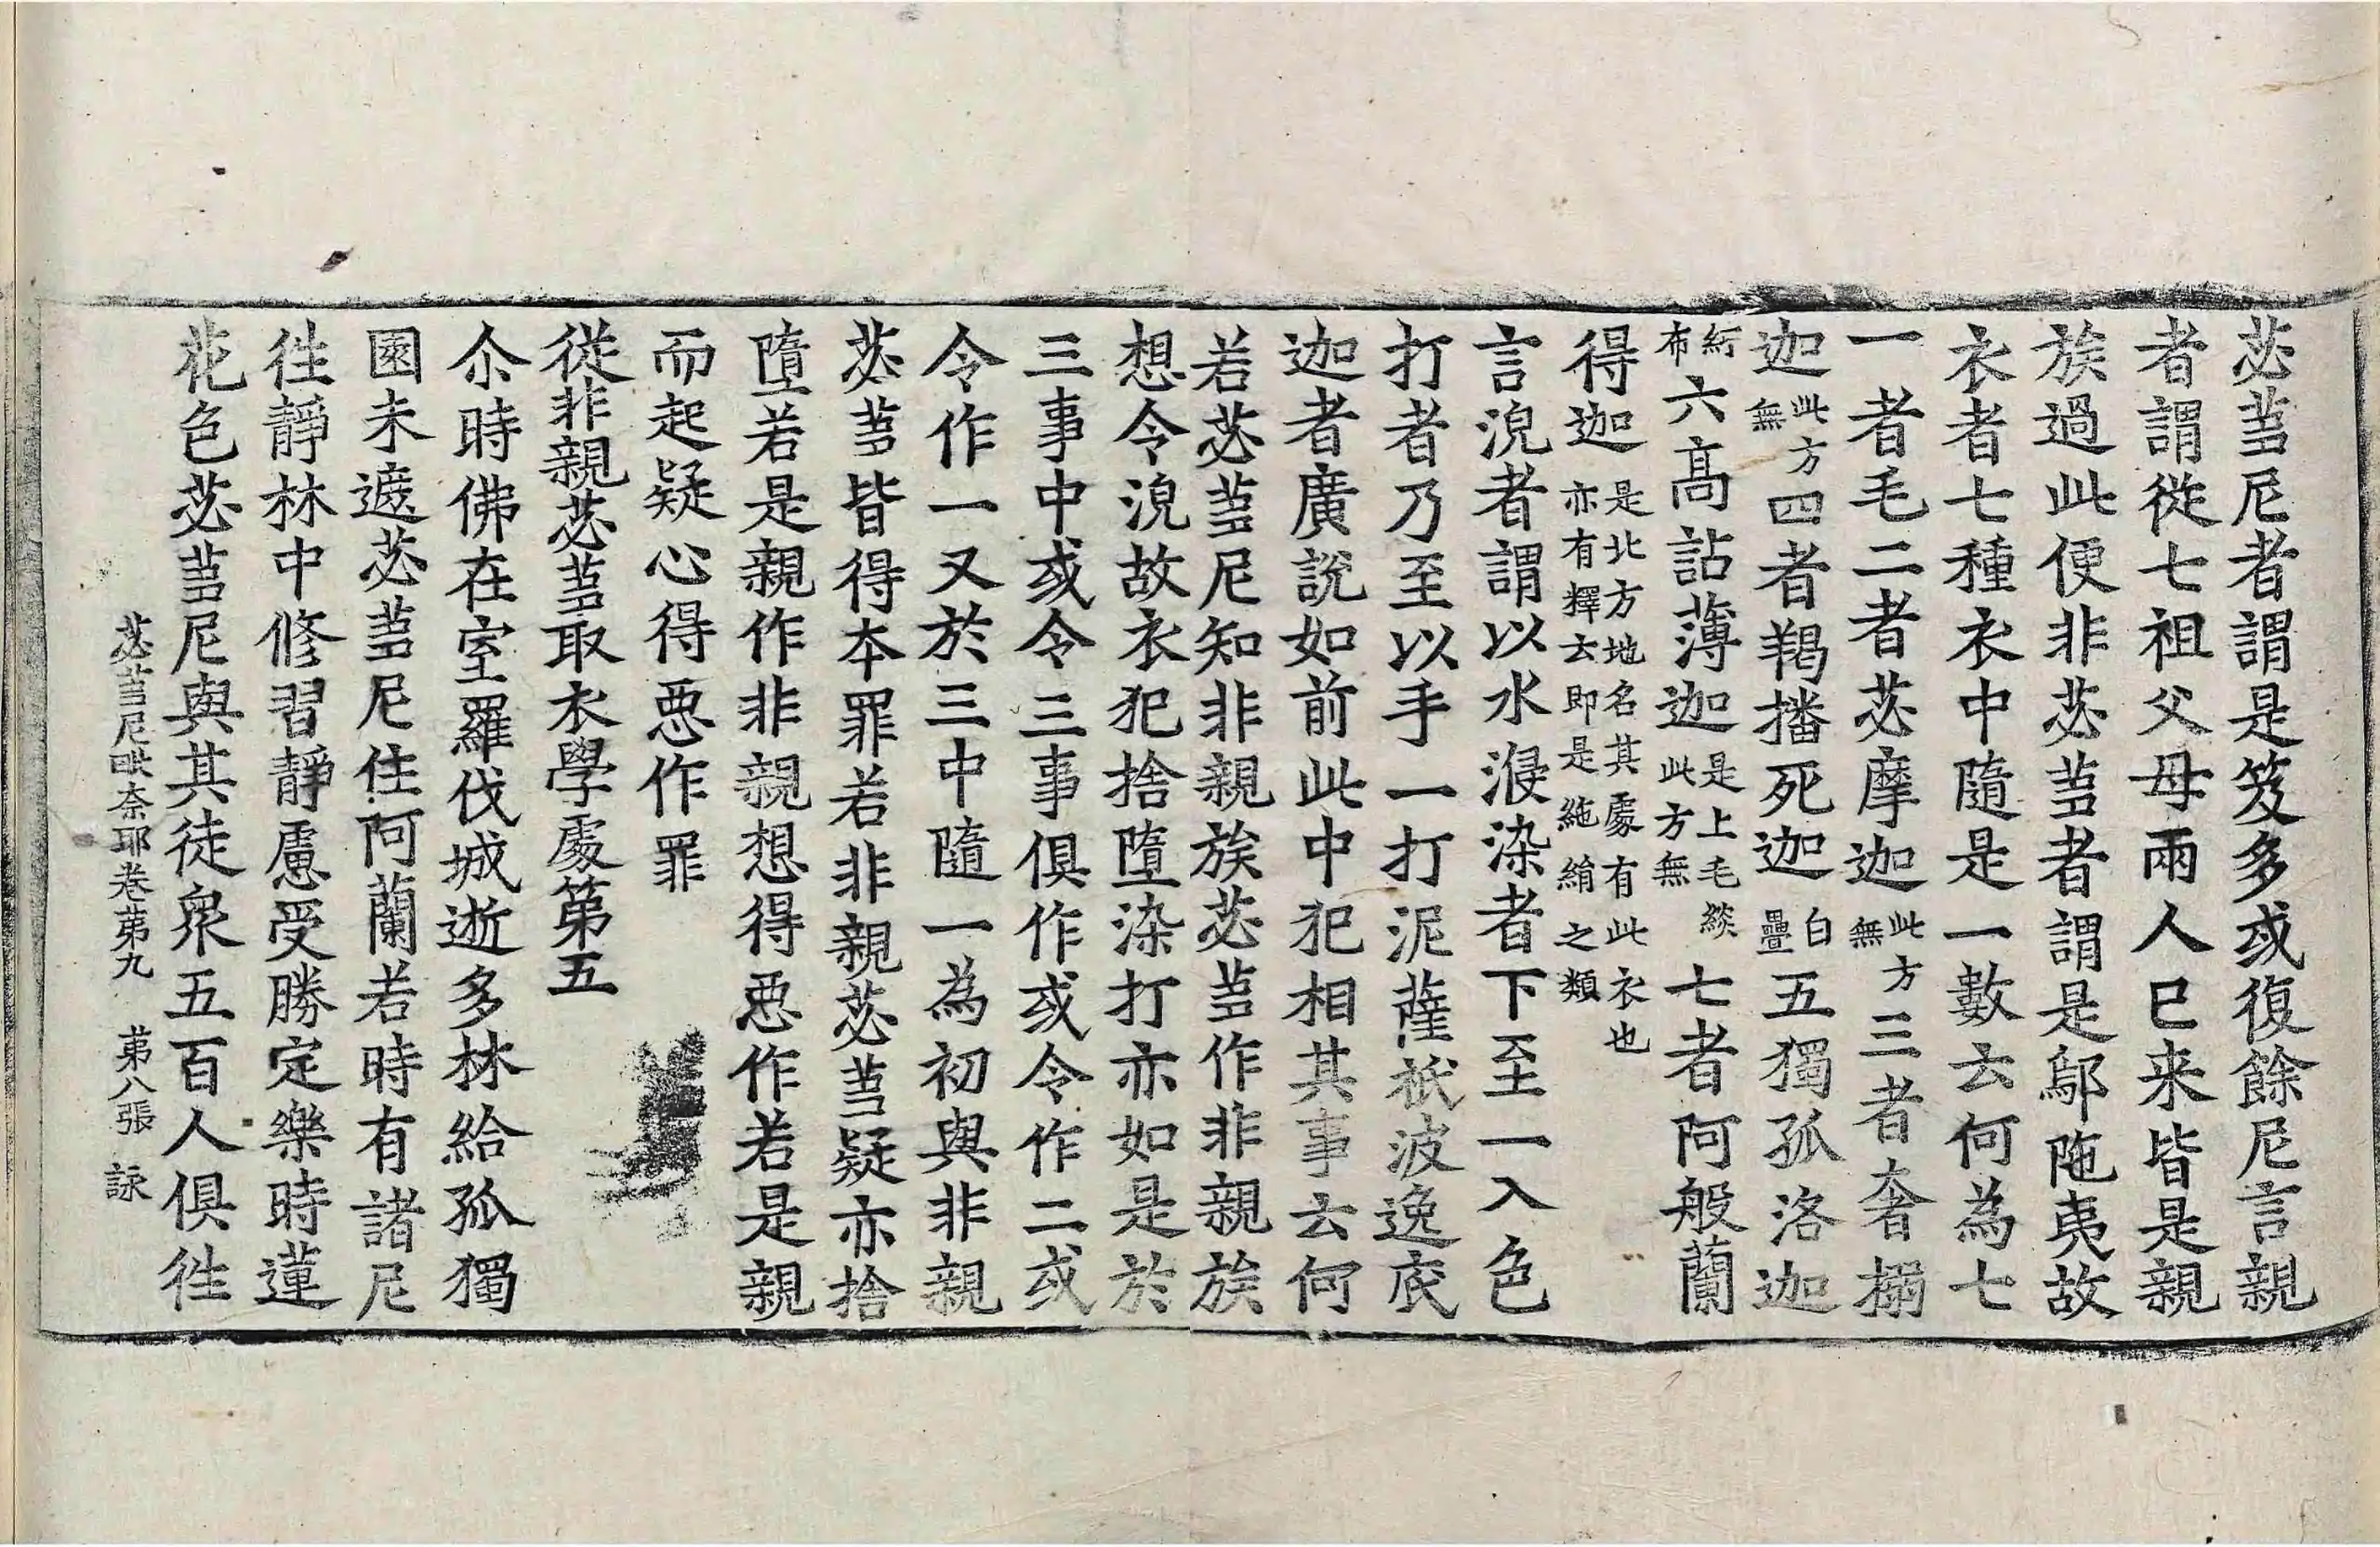 苾蒭尼者謂是笈多或復餘尼言親
者謂從七祖父母兩人已来皆是親
族過此便非苾蒭者謂是鄔陁夷故
衣者七種衣中隨是一數云何為七
一者毛二者苾摩迦此方無三者奢搦
迦此方無四者羯播死迦白疊五獨孤洛迦
紵布六高詀薄迦是上毛緂此方無七者阿般蘭
得迦是北方地名其處有此衣也亦有釋云即是絁絹之類
言浣者謂以水浸染者下至一入色
打者乃至以手一打泥薩祇波逸底
迦者廣說如前此中犯相其事云何
若苾蒭尼知非親族苾蒭作非親族
想令浣故衣犯捨墮染打亦如是於
三事中或令三事俱作或令作二或
令作一又於三中隨一為初與非親
苾蒭皆得本罪若非親苾蒭疑亦捨
墮若是親作非親想得惡作若是親
而起疑心得惡作罪
從非親苾蒭取衣學處第五
尒時佛在室羅伐城逝多林給孤獨
園未遮苾蒭尼住阿蘭若時有諸尼
徃靜林中修習靜慮受勝定樂時蓮
花色苾蒭尼與其徒衆五百人俱徃
苾蒭尼毗奈耶卷第九 第八張 詠